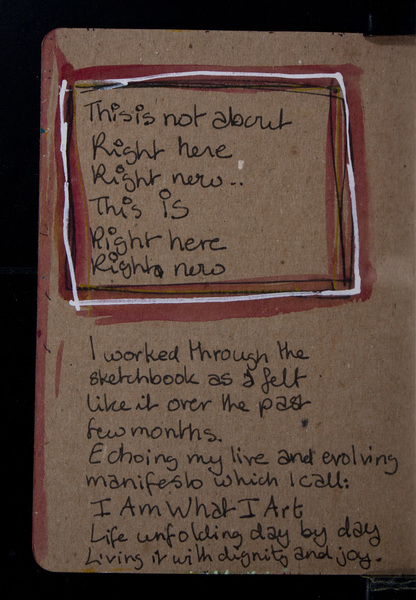 This is not about
Right here
Right now..
This is
Right here
Right now
I worked through the
sketchbook as I felt
like it over the past
few months.
Echoing my live and evolving
manifesto which I call:
I Am What I Art
Life unfolding day by day
Living it with dignity and joy.